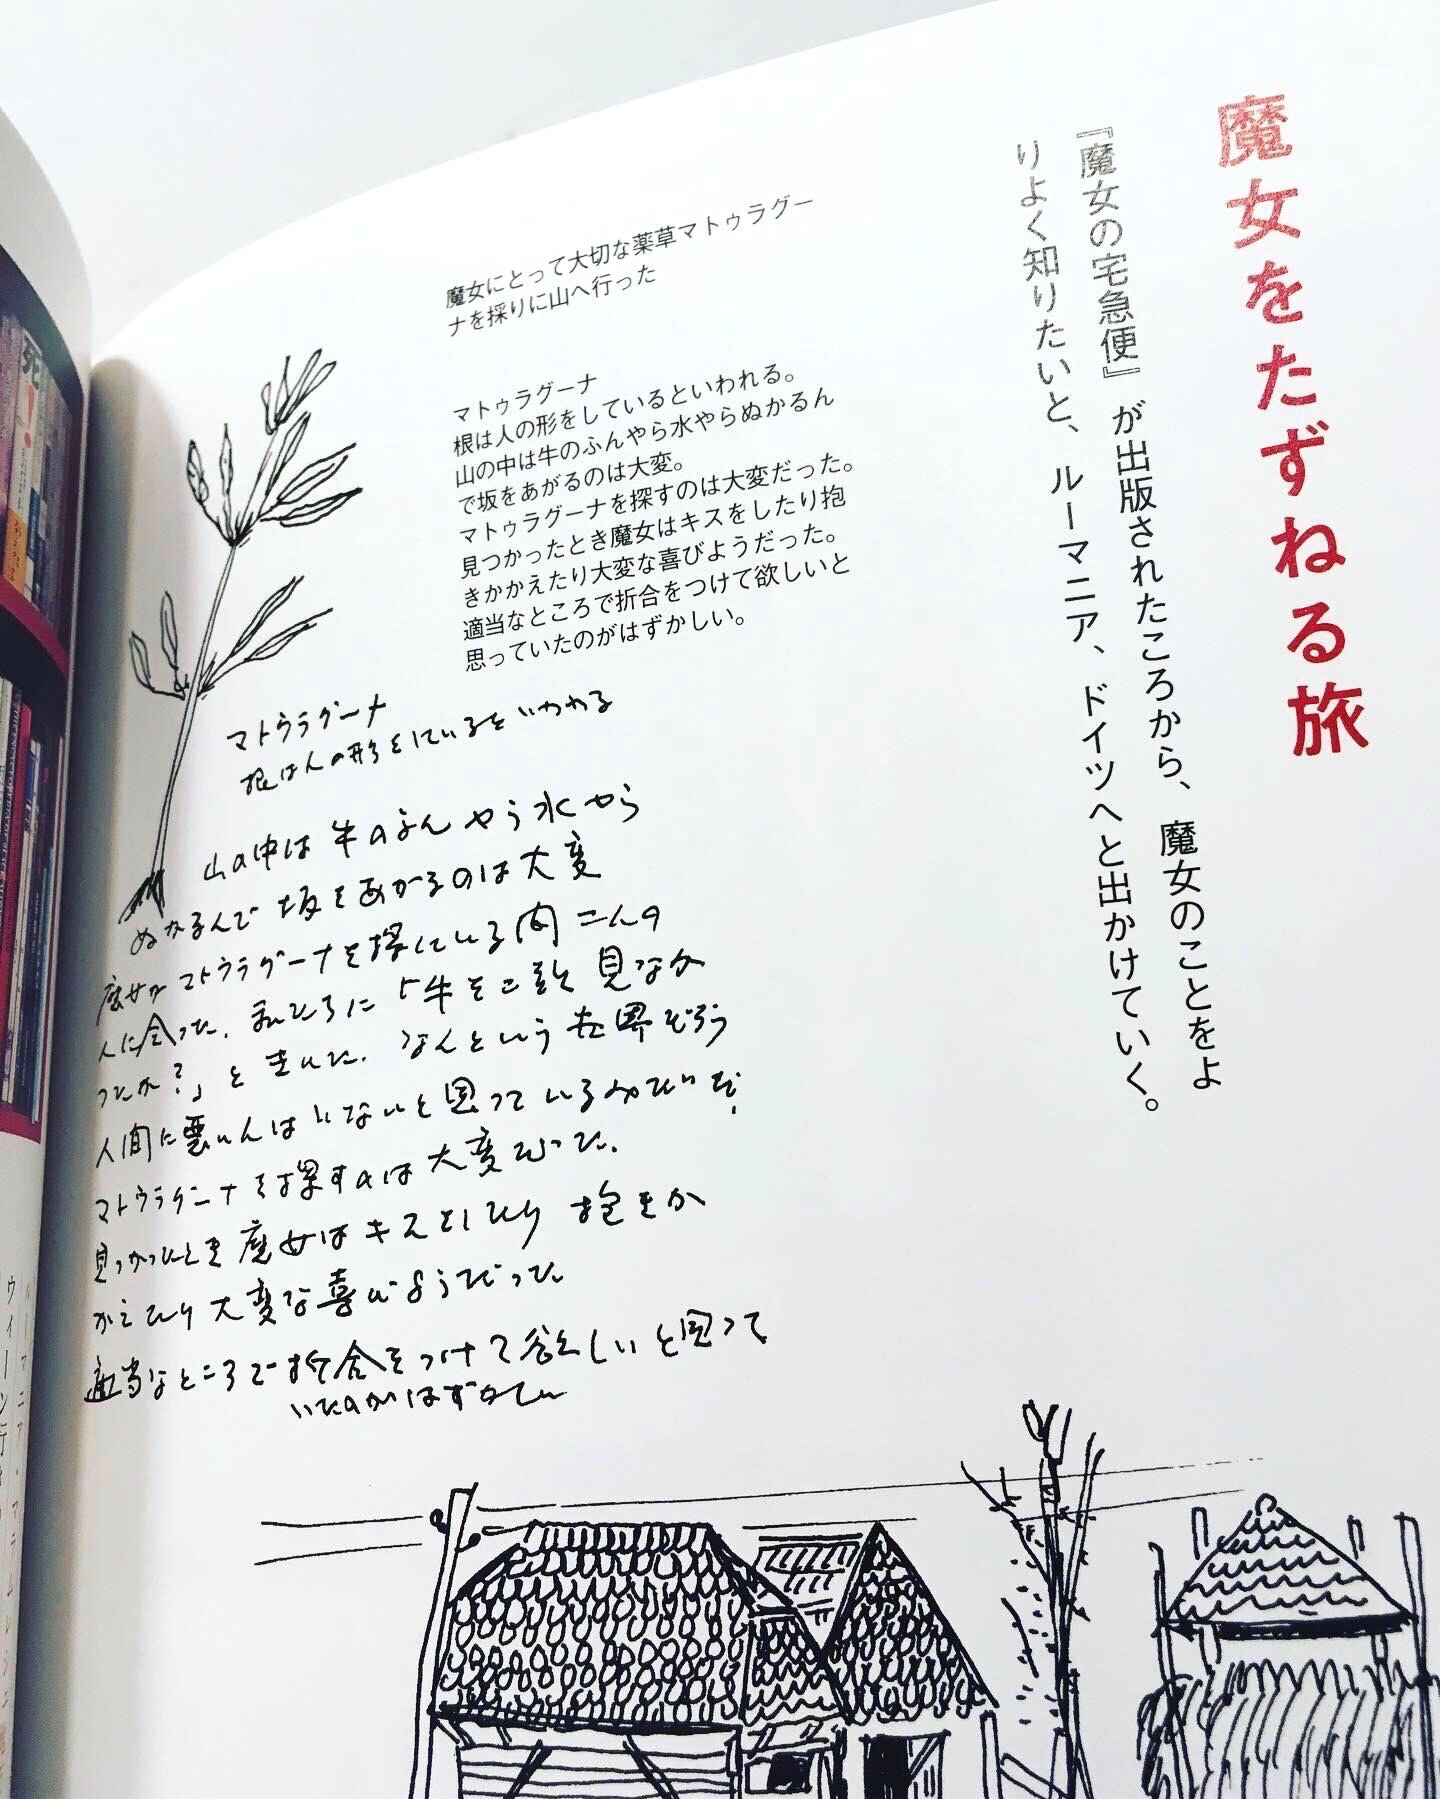 魔女をたずねる旅
『魔女の宅急便』が出版されたころから、魔女のことをよ
りよく知りたいと、ルーマニア、ドイツへと出かけていく。
魔女にとって大切な薬草マトゥラグー
ナを採りに山へ行った
マトゥラグーナ
根は人の形をしているといわれる。
山の中は牛のふんやら水やらぬかるん
で坂をあがるのは大変。
マトゥラグーナを探すのは大変だった。
見つかったとき魔女はキスをしたり抱
きかかえたり大変な喜びようだった。
適当なところで折合をつけて欲しいと
思っていたのがはずかしい。
マトゥラグーナ
根は人の形をしているといわれる
山の中は牛のふんやら水やら
ぬかるんで坂をあがるのは大変
魔女がマトゥラグーナを探している間二人の
人に会った。私たちに「牛を二頭見なか
ったか?」ときいた。なんという世界だろう
人間に悪い人はいないと思っているみたいだ。
マトゥラグーナを探すのは大変だった。
見つかったとき魔女はキスをしたり抱きか
かえたり大変な喜びようだった
適当なところで折合をつけて欲しいと思って
いたのがはずかしい